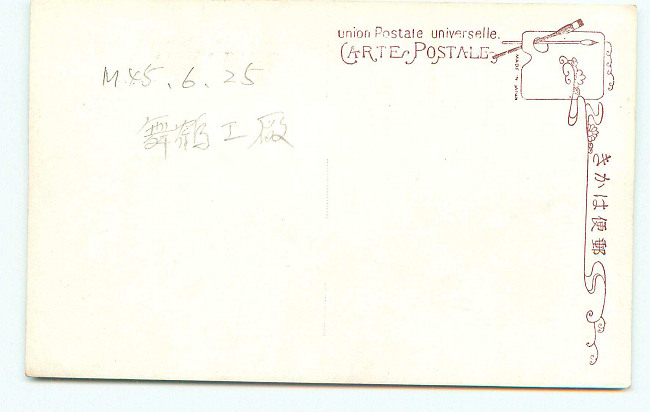 union Postale universelle.
CARTE POSTALE
MADE IN JAPAN
M45.6.25
舞鶴工廠
郵便はかき